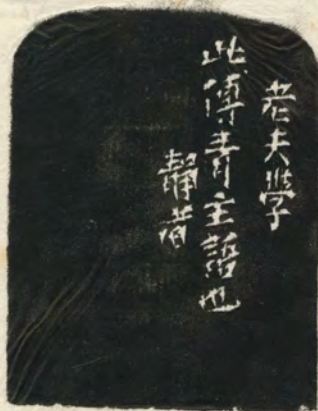 老夫學
此傅青主語也
靜